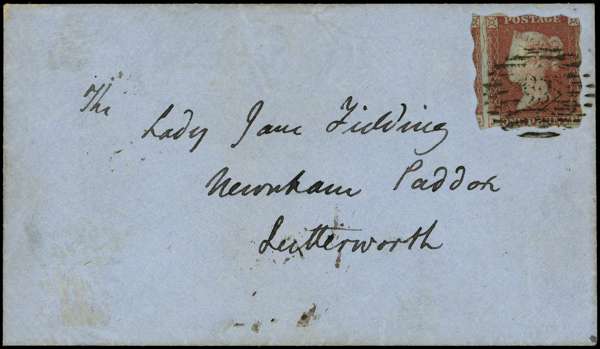 POSTAGE
The
Lady Jane Fielding
Newnham Paddox
Lutterworth